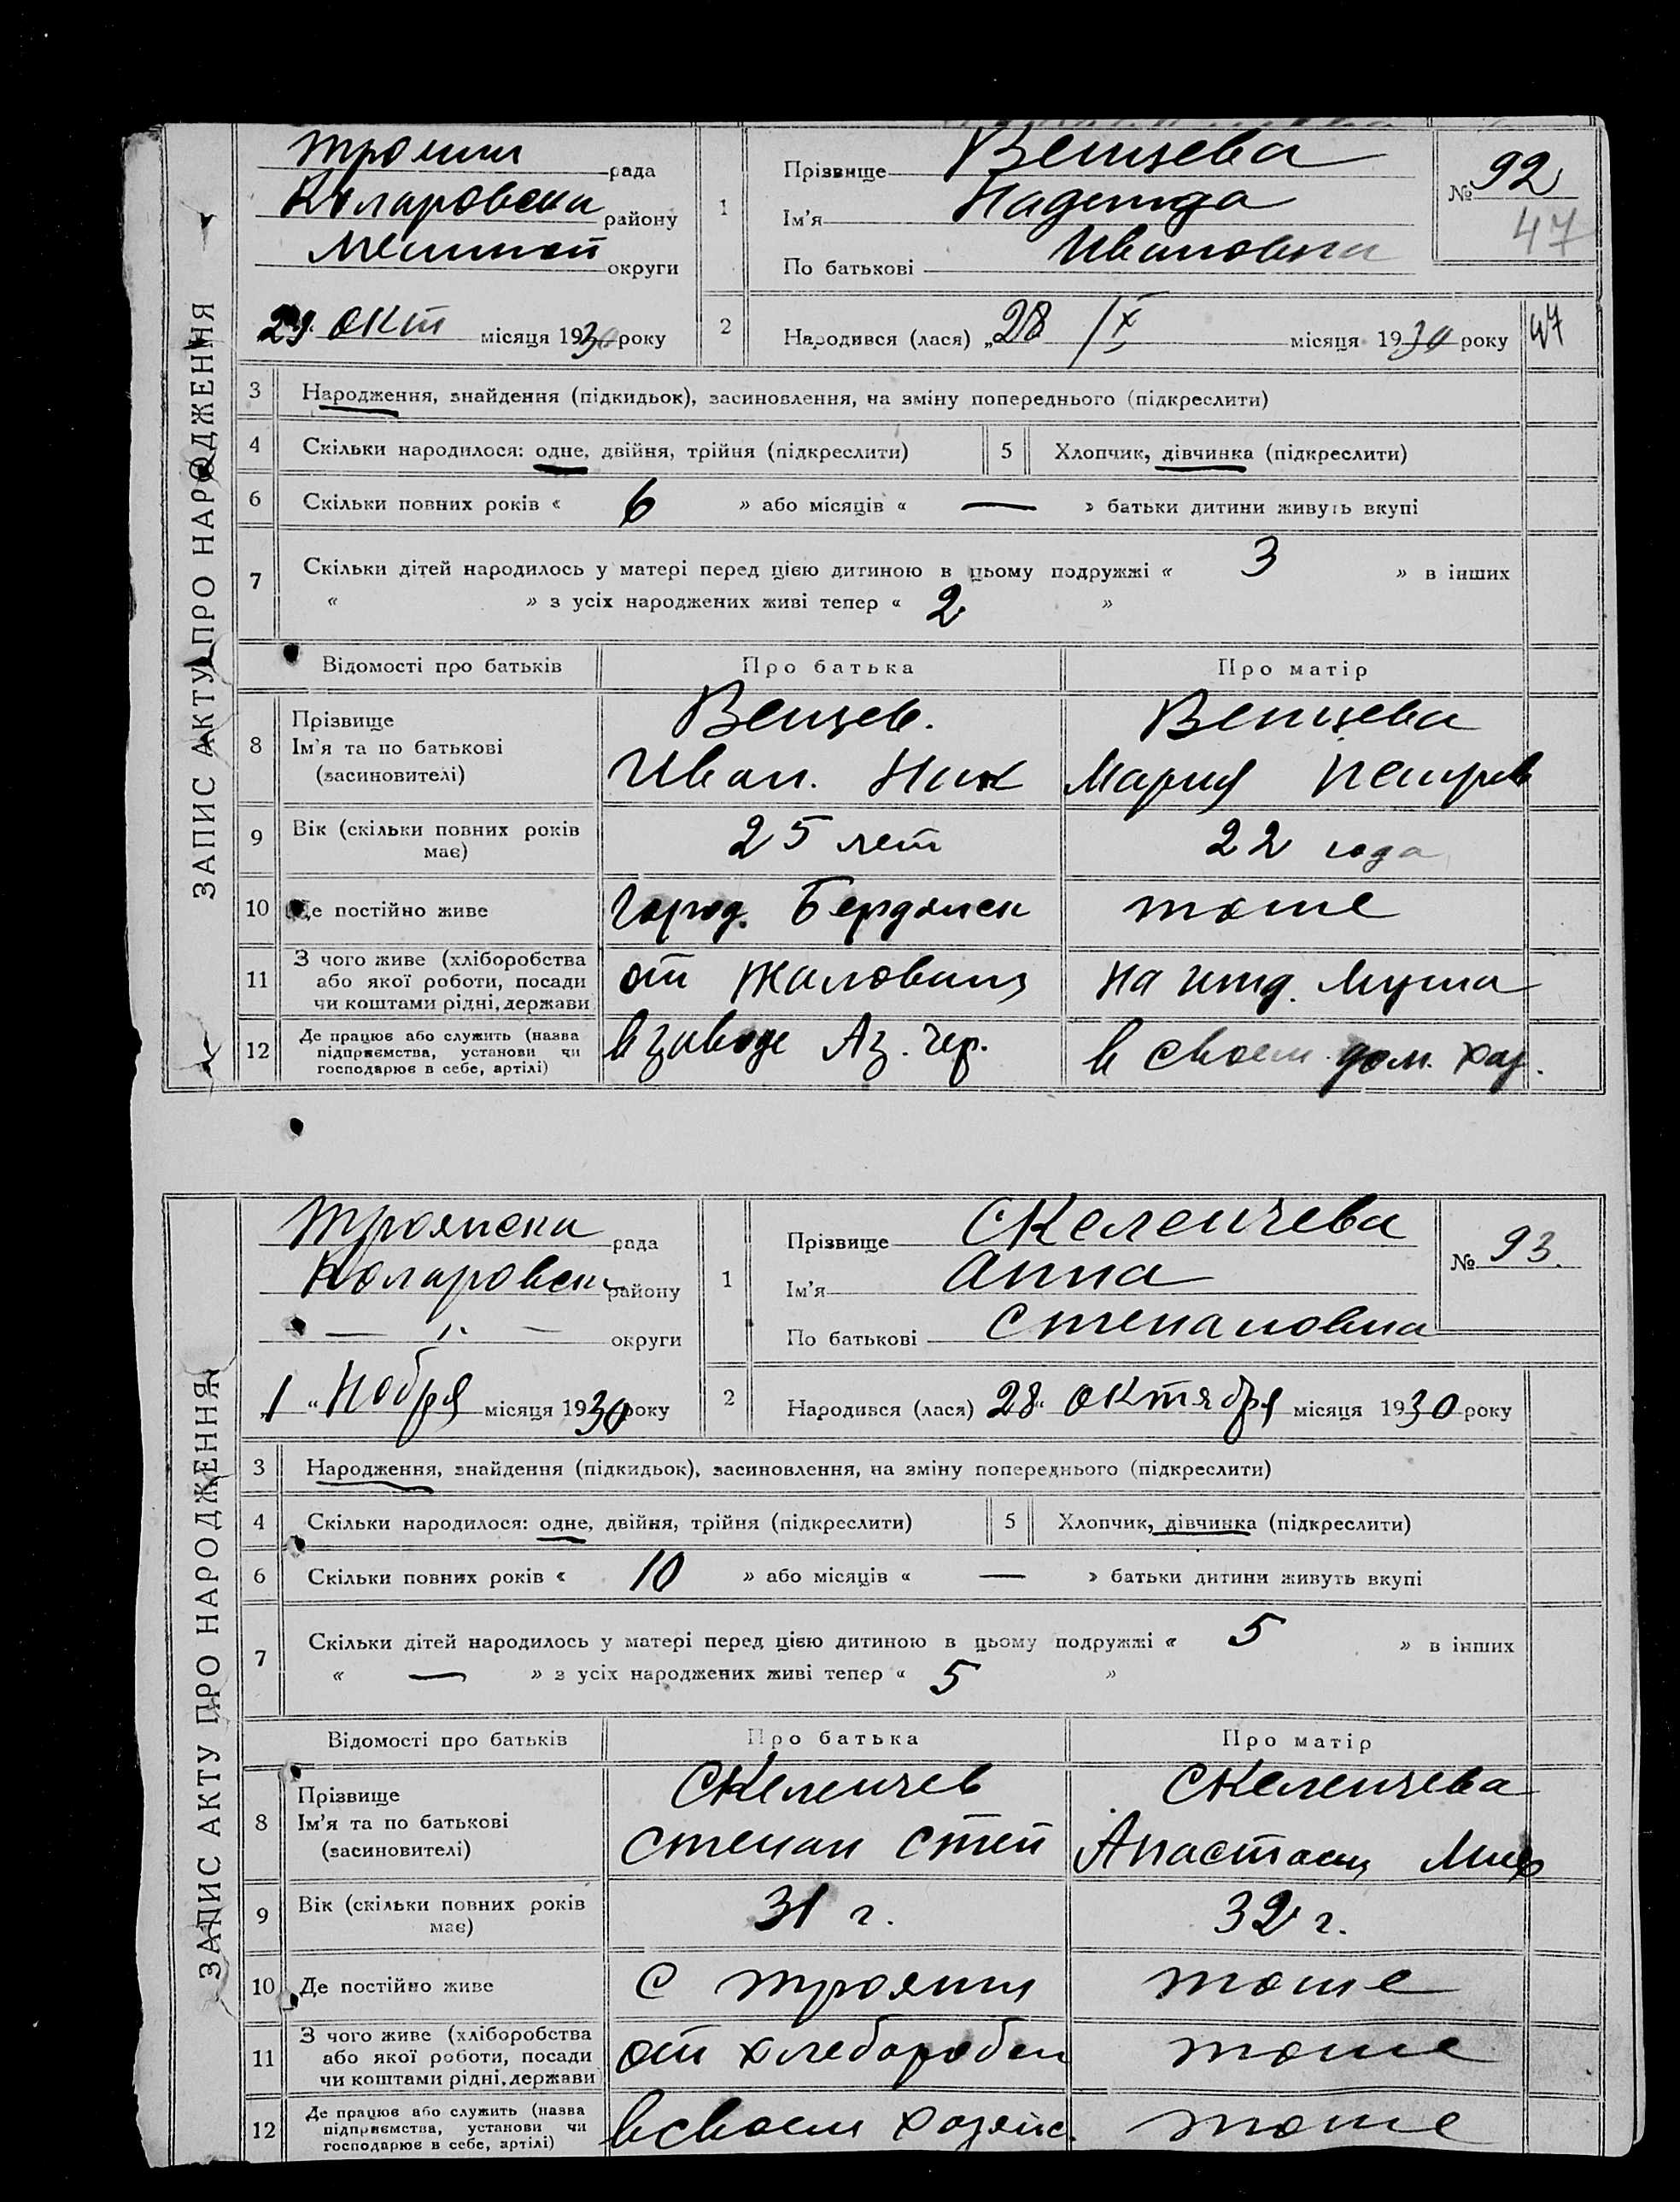 ЗАПИС АКТУ ПРО НАРОДЖЕННЯ
Троянн рада
Коларовски району
Мелитоп округи
29 окт місяця 1930 року
1
Прізвище Венцева
Ім'я Надежда
По батькові Ивановна
№ 92
47
2
Народився (лася) „28 /X місяця 1930 року
47
3 Народження, знайдення (підкидьок), засиновлення, на зміну попереднього (підкреслити)
4 Скільки народилося: одне, двійня, трійня (підкреслити) 5 Хлопчик, дівчинка (підкреслити)
6 Скільки повних років « 6 » або місяців « — » батьки дитини живуть вкупі
7 Скільки дітей народилось у матері перед цією дитиною в цьому подружжі « 3 » в інших
« » з усіх народжених живі тепер « 2 »
Відомості про батьків Про батька Про матір
8 Прізвище
Ім'я та по батькові
(засиновителі)
Венцев.
Иван. Ник
Венцева
Мария Петров
9 Вік (скільки повних років
має)
25 лет
22 года
10 Де постійно живе
Город. Бердянск
тоже
11 З чого живе (хліборобства
або якої роботи, посади
чи коштами рідні, держави
от Жалования
на ижд. мужа
12 Де працює або служить (назва
підприємства, установи чи
господарює в себе, артілі)
в заводе Аз. Чер.
в своем дом. хоз.
ЗАПИС АКТУ ПРО НАРОДЖЕННЯ
Троянски рада
Коларовски району
— „ — округи
„1 „ Ноября місяця 1930 року
1
Прізвище Скеленчева
Ім'я Анна
По батькові Степановна
№ 93.
2
Народився (лася) 28 „ октября місяця 1930 року
3 Народження, знайдення (підкидьок), засиновлення, на зміну попереднього (підкреслити)
4 Скільки народилося: одне, двійня, трійня (підкреслити) 5 Хлопчик, дівчинка (підкреслити)
6 Скільки повних років « 10 » або місяців « — » батьки дитини живуть вкупі
7 Скільки дітей народилось у матері перед цією дитиною в цьому подружжі « 5 » в інших
« — » з усіх народжених живі тепер « 5 »
Відомості про батьків Про батька Про матір
8 Прізвище
Ім'я та по батькові
(засиновителі)
Скеленчев
Степан Степ
Скеленчева
Анастасия Мих
9 Вік (скільки повних років
має)
31 г.
32 г.
10 Де постійно живе
С Трояны
тоже
11 З чого живе (хліборобства
або якої роботи, посади
чи коштами рідні, держави
от хлеборобст
тоже
12 Де працює або служить (назва
підприємства, установи чи
господарює в себе, артілі)
в своем хозяйс.
тоже